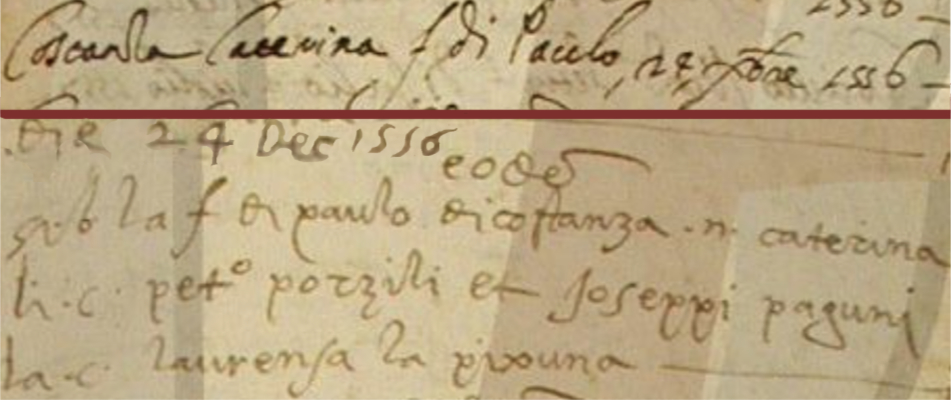 1556 -
Coscanza Caterina f di Paulo, 24, Xbre 1556 -
die 24 Dec 1556
eodē
gi.b la f di paulo di costanza .n. caterina
li .c. petº porzili et Joseppi paguni
la .c. laurensa la pixuna